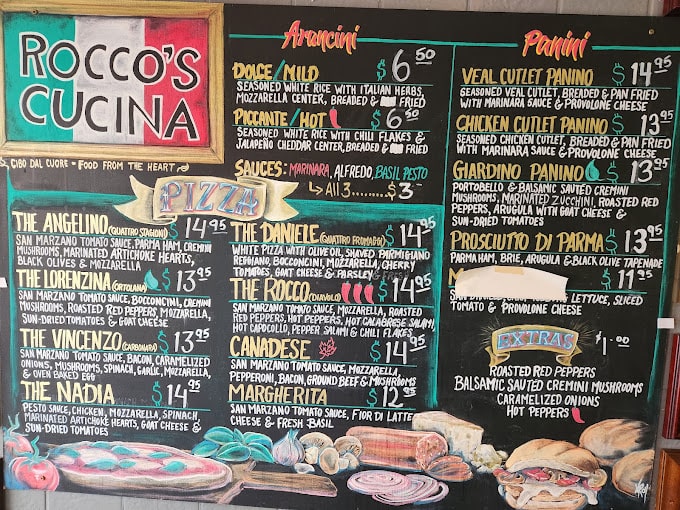 ROCCO'S
CUCINA
CIBO DAL CUORE - FOOD FROM THE HEART
Arancini
DOLCE/MILD $6.50
SEASONED WHITE RICE WITH ITALIAN HERBS,
MOZZARELLA CENTER, BREADED & FRIED
PICCANTE/HOT $6.50
SEASONED WHITE RICE WITH CHILI FLAKES &
JALAPEÑO CHEDDAR CENTER, BREADED & FRIED
SAUCES: MARINARA, ALFREDO, BASIL PESTO
ALL 3....... $3.
PIZZA
THE ANGELINO (QUATTRO STAGIONI) $14.95
SAN MARZANO TOMATO SAUCE, PARMA HAM, CREMINI
MUSHROOMS, MARINATED ARTICHOKE HEARTS,
BLACK OLIVES & MOZZARELLA
THE LORENZINA (ORTOLANA) $13.95
SAN MARZANO TOMATO SAUCE, BOCCONCINI, CREMINI
MUSHROOMS, ROASTED RED PEPPERS, MOZZARELLA,
SUN-DRIED TOMATOES & GOAT CHEESE
THE VINCENZO (CARBONARA) $13.95
SAN MARZANO TOMATO SAUCE, BACON, CARAMELIZED
ONIONS, MUSHROOMS, SPINACH, GARLIC, MOZZARELLA,
& OVEN BAKED EGG
THE NADIA $14.95
PESTO SAUCE, CHICKEN, MOZZARELLA, SPINACH
MARINATED ARTICHOKE HEARTS, GOAT CHEESE &
SUN-DRIED TOMATOES
THE DANIELE (QUATTRO FROMAGIO) $14.95
WHITE PIZZA WITH OLIVE OIL, SHAVED PARMIGIANO
REGGIANO, BOCCONCINI, MOZZARELLA, CHERRY
TOMATOES, GOAT CHEESE & PARSLEY
THE ROCCO (DIAVOLO) $14.95
SAN MARZANO TOMATO SAUCE, MOZZARELLA, ROASTED
RED PEPPERS, HOT PEPPERS, HOT CALABRESE SALAMI,
HOT CAPOCOLLO, PEPPER SALAMI & CHILI FLAKES
CANADESE $14.95
SAN MARZANO TOMATO SAUCE, MOZZARELLA,
PEPPERONI, BACON, GROUND BEEF & MUSHROOMS
MARGHERITA $12.95
SAN MARZANO TOMATO SAUCE, FIOR DI LATTE
CHEESE & FRESH BASIL
Panini
VEAL CUTLET PANINO $14.95
SEASONED VEAL CUTLET, BREADED & PAN FRIED
WITH MARINARA SAUCE & PROVOLONE CHEESE
CHICKEN CUTLET PANINO $13.95
SEASONED CHICKEN CUTLET, BREADED & PAN FRIED
WITH MARINARA SAUCE & PROVOLONE CHEESE
GIARDINO PANINO $13.95
PORTOBELLO & BALSAMIC SAUTED CREMINI
MUSHROOMS, MARINATED ZUCCHINI, ROASTED RED
PEPPERS, ARUGULA WITH GOAT CHEESE &
SUN-DRIED TOMATOES
PROSCIUTTO DI PARMA $13.95
PARMA HAM, BRIE, ARUGULA & BLACK OLIVE TAPENADE
$11.95
LETTUCE, SLICED
TOMATO & PROVOLONE CHEESE
EXTRAS $1.00
ROASTED RED PEPPERS
BALSAMIC SAUTED CREMINI MUSHROOMS
CARAMELIZED ONIONS
HOT PEPPERS